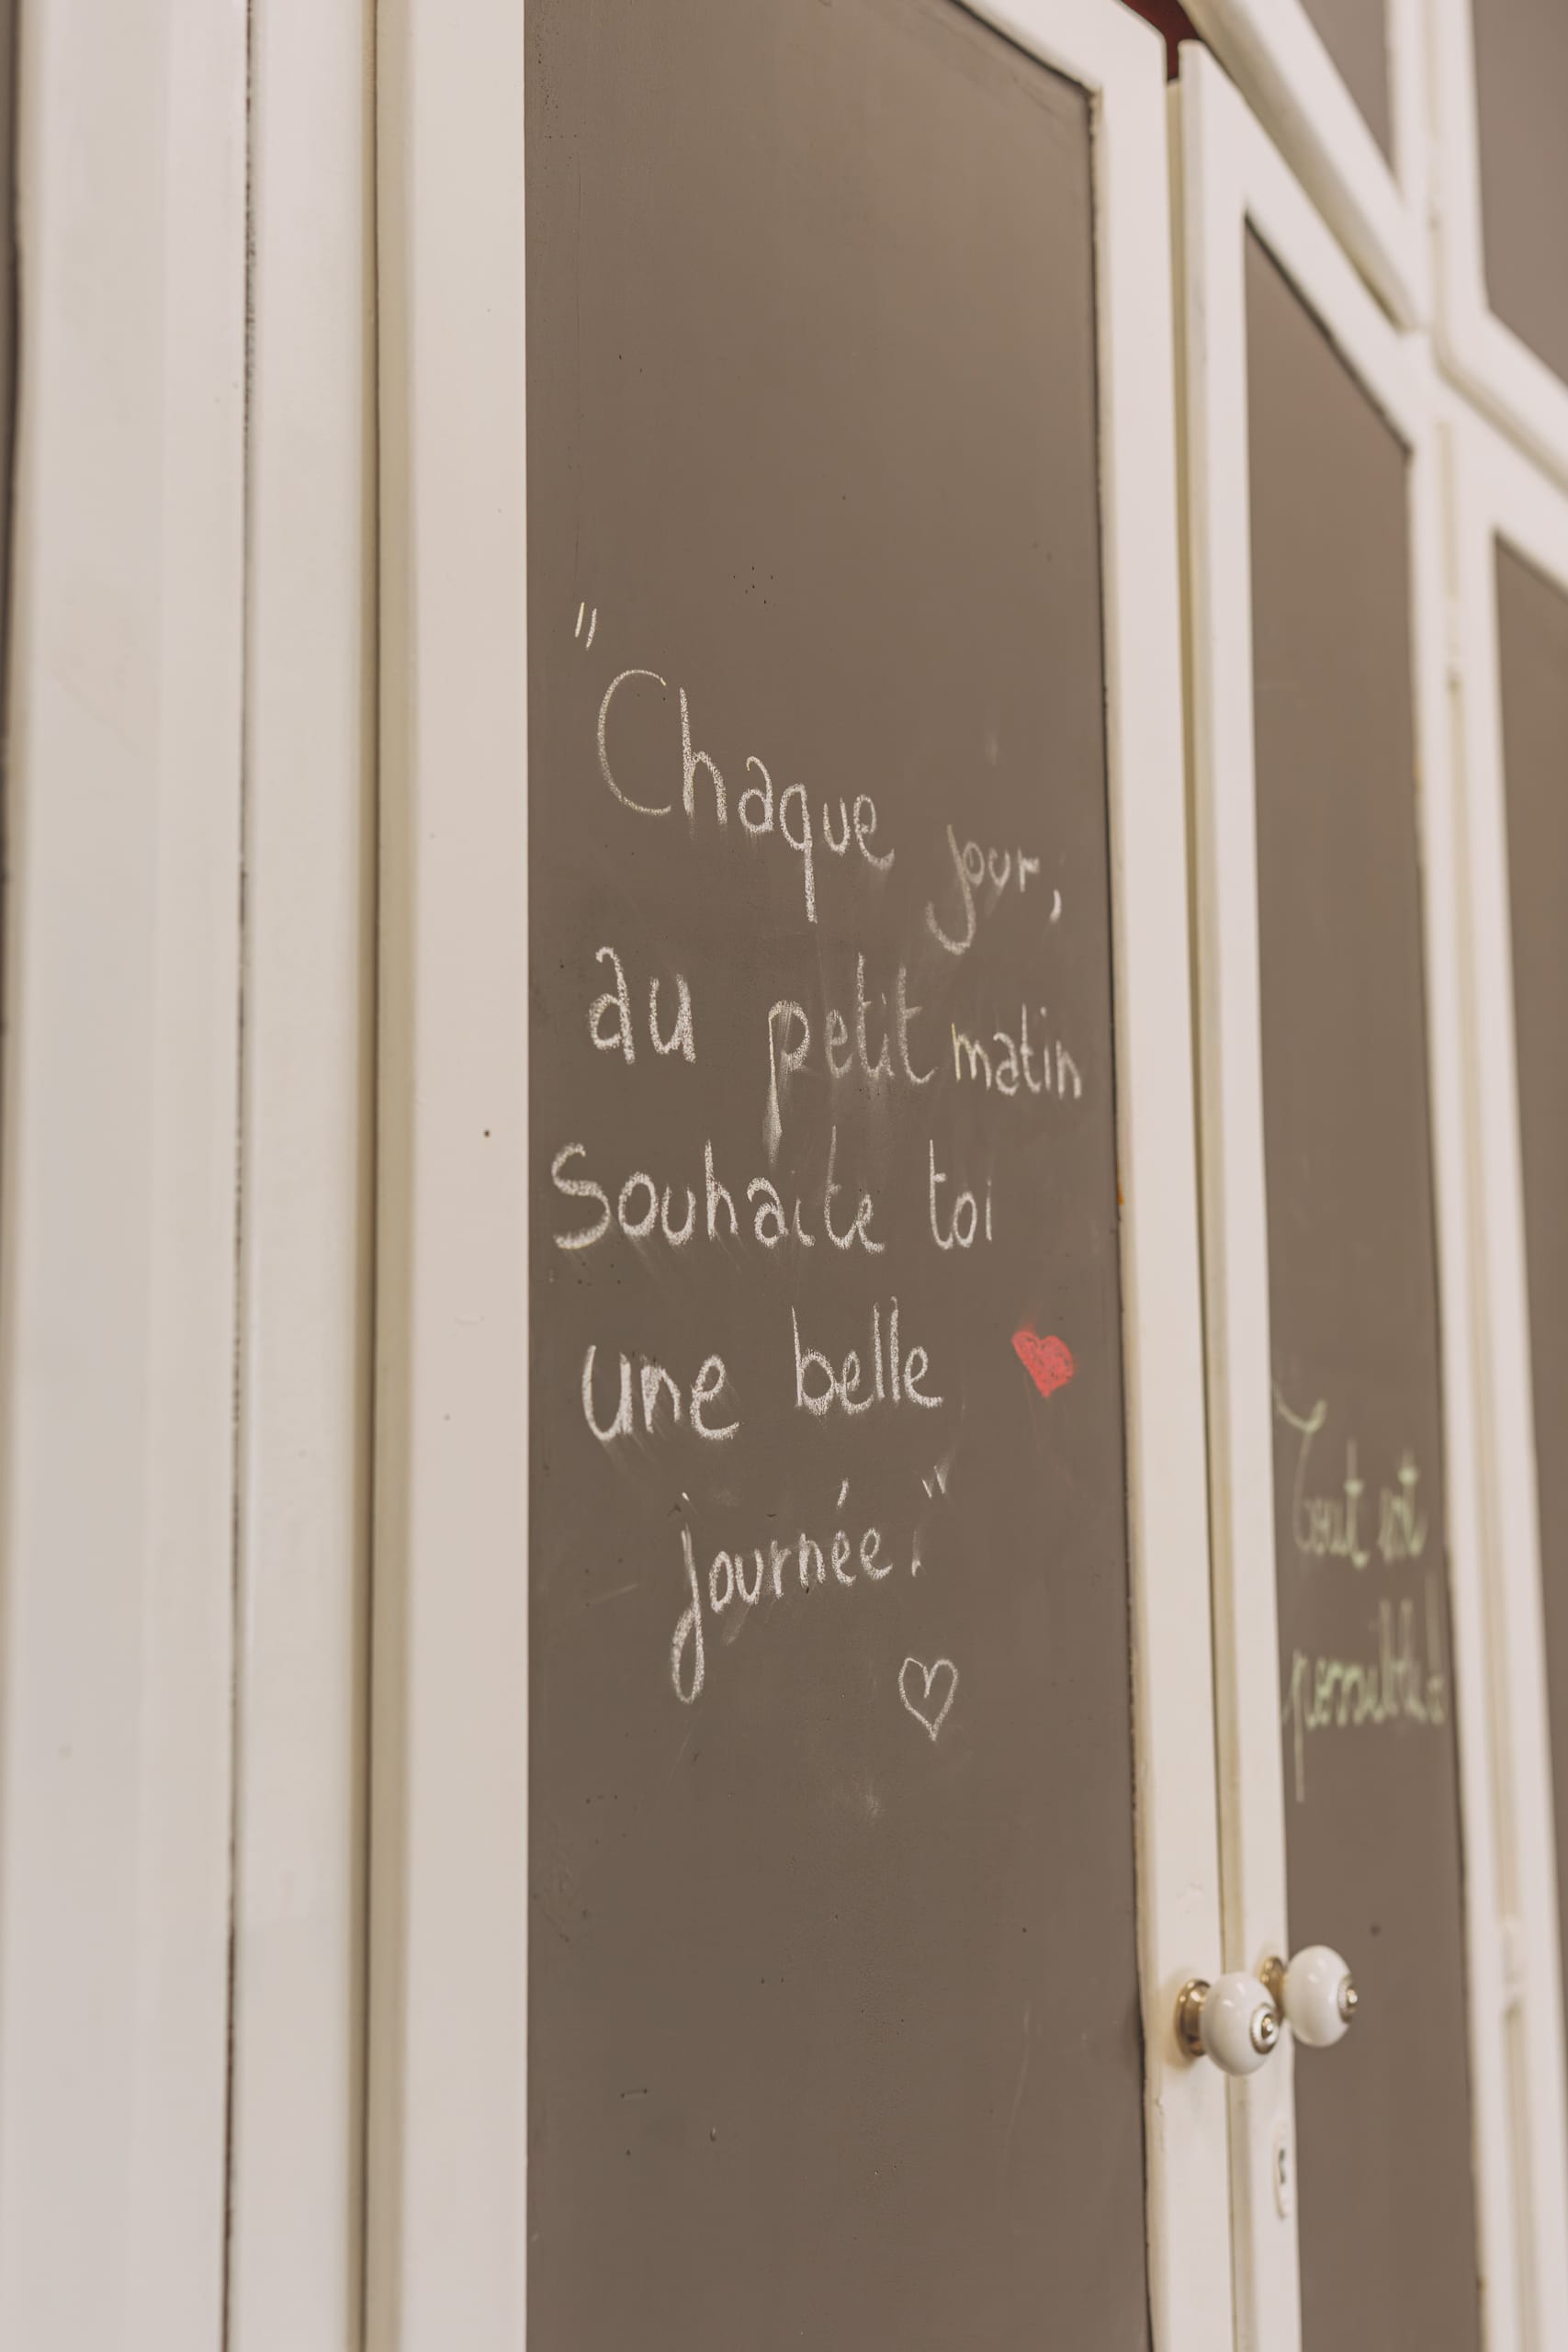 "Chaque jour,
au petit matin
Souhaite toi
une belle
journée."
Tout est
possible!